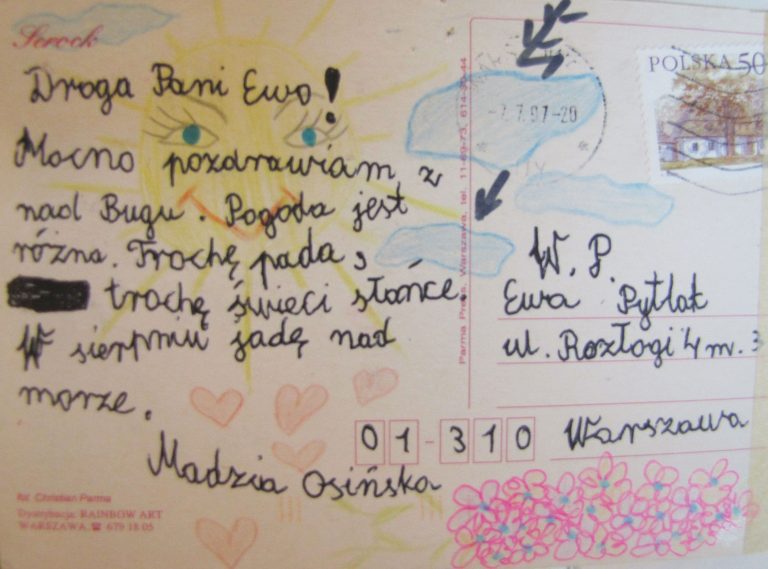 Serock
Droga Pani Ewo!
Mocno pozdrawiam z
nad Bugu. Pogoda jest
różna. Trochę pada,
trochę świeci słońce.
W sierpniu jadę nad
morze.
Madzia Osińska
fot. Christian Parma
Dystrybucja: RAINBOW ART
WARSZAWA, ☎ 679 18 05
Parma Press, Warszawa, tel. 11-69-73, 614-30-44
-7.7.97-20
POLSKA 50
W.P
Ewa Pytlak
ul. Rozłogi 4 m. 3
01-310 Warszawa